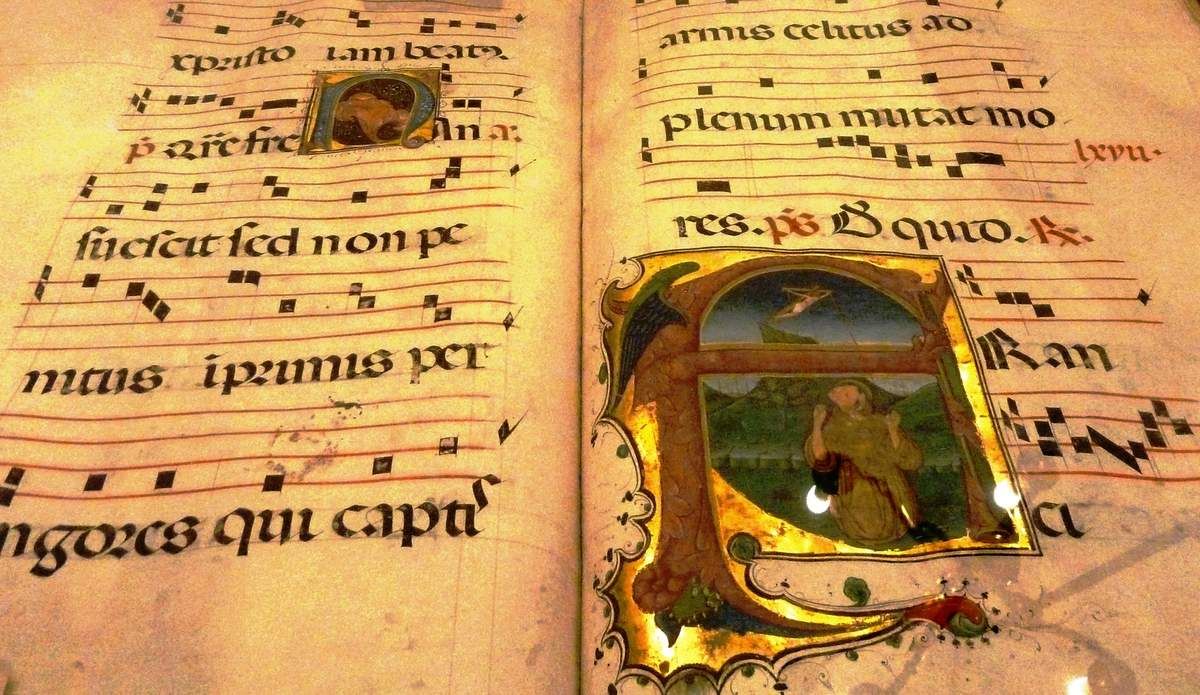 xpristo iam beatꝰ.
MAn
suescit sed non pe
nitus īprimis per
ngores qui capti
armis celitus ad
plenum mutat mo
lxvii.
res. p̄s quid. ℟.
FRan
ci